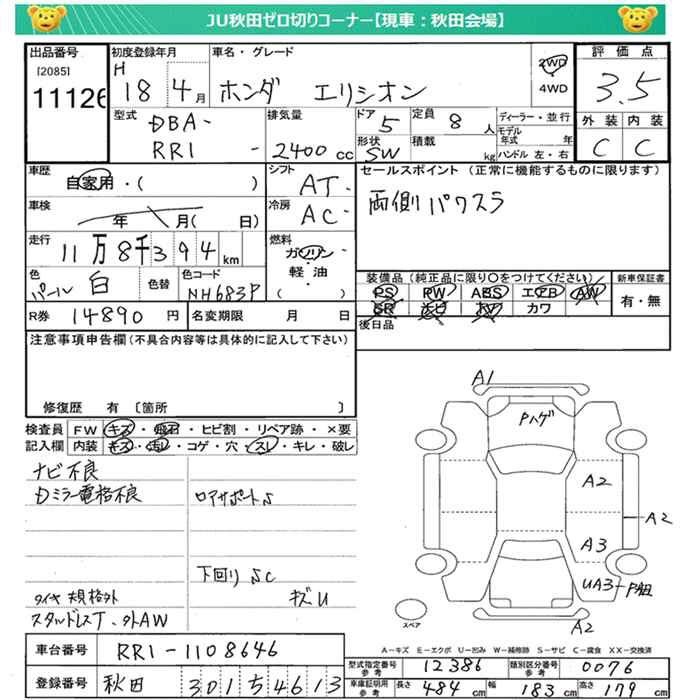 JU秋田ゼロ切りコーナー【現車：秋田会場】
出品番号
[2085]
11126
初度登録年月
H 18 4月
車名・グレード
ホンダ エリシオン
2WD
4WD
評価点
3.5
外装 内装
C C
型式
DBA-
RR1 -
排気量
2400 cc
ドア
5
定員
8 人
形状
SW
積載
kg
ディーラー・並行
モデル年式 年
ハンドル 左・右
車歴
自家用・( )
シフト
AT-
セールスポイント (正常に機能するものに限ります)
両側パワスラ
車検
年 月( 日)
冷房
AC-
走行
11万8千394km
燃料
ガソリン・
軽油・
( )
色
パール 白
色替
色コード
NH683P
装備品 (純正品に限り○をつけてください)
PS PW ABS エアB AW
SR ナビ カワ
新車保証書
有・無
R券 14890 円
名変期限 月 日
後日品
注意事項申告欄(不具合内容等は具体的に記入して下さい)
修復歴 有 〔箇所 〕
検査員記入欄
FW キズ・飛石・ヒビ割・リペア跡・×要
内装 キズ・汚レ・コゲ・穴・スレ・キレ・破レ
ナビ不良
Dミラー電格不良
ロアサポートS
下回りSC
キズU
タイヤ規格外
スタッドレスT、外AW
A1
Pハゲ
A2
A2
A3
UA3-P組
A2
スペア
A-キズ E-エクボ U-凹み W-補修跡 S-サビ C-腐食 XX-交換済
車台番号 RR1-1108646
型式指定番号 参考 12386
類別区分番号 参考 0076
登録番号 秋田 301 5 4613
車庫証明用 参考 長さ 484cm 幅 183cm 高さ 179cm